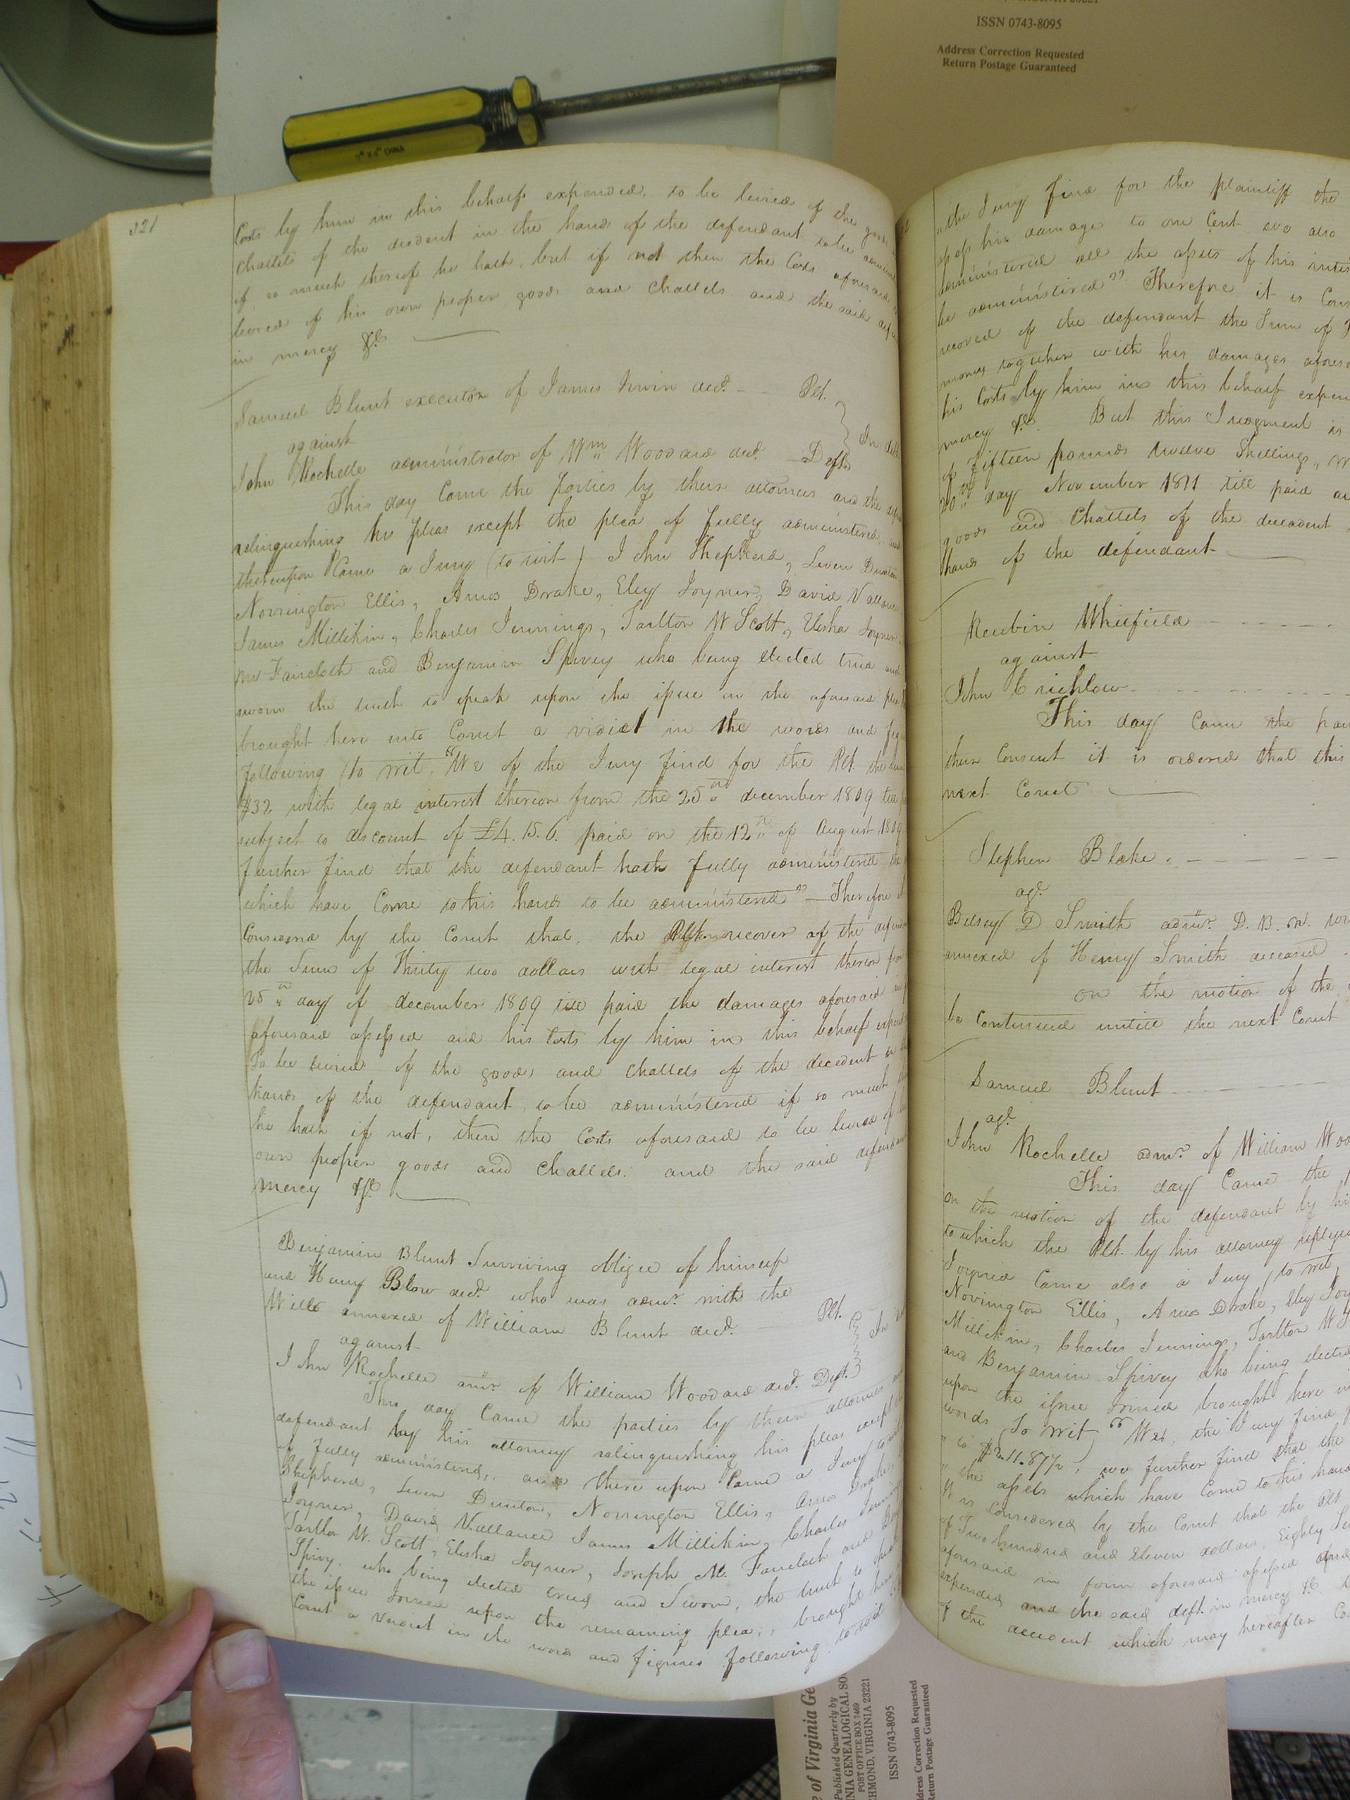 ISSN 0743-8095
Address Correction Requested
Return Postage Guaranteed
321
Costs by him in this behalf expended, to be levied of the goods
Chattels of the decedent in the hands of the defendant to be
if so much thereof he hath, but if not then the Costs aforesaid
levied of his own proper goods and Chattels and the said
in mercy &c
Samuel Blunt executor of James Irwin decd. Plt.
against
John Rochelle administrator of Wm Woodard decd. Deft.
This day Came the parties by their attornies and the
relinquishing his pleas except the plea of fully administered, and
thereupon Came a Jury (to wit) John Shepherd, Leven Dunton
Norrington Ellis, Amos Drake, Eley Joyner, David Vallance
James Millikin, Charles Jennings, Tarlton W Scott, Elisha Joyner,
Mc Faircloth and Benjamin Spivey who being elected tried and
sworn the truth to speak upon the issue on the aforesaid plea
brought here into Court a virdict in the words and
following (to wit, "We of the Jury find for the Plt. the
$32 with legal interest thereon from the 25th december 1809 till
subject to discount of £4.15.6. paid on the 12th of August 1809
further find that the defendant hath fully administered the
which have Come to his hands to be administered" Therefore
Considered by the Court that, the Plt. recover of the
the Sum of Thirty two dollars with legal interest thereon from
25th day of december 1809 till paid the damages aforesaid
aforesaid assessed and his Costs by him in this behalf
To be levied of the goods and Chattels of the decedent in
hands of the defendant, to be administered if so much
he hath if not, then the Costs aforesaid to be levied of
own proper goods and Chattels: and the said
mercy &c
Benjamin Blunt Surviving Obligee of himself
and Henry Blow decd. who was admr. with the
Will annexed of William Blunt decd. Plt.
against
John Rochelle admr. of William Woodard decd. Deft.
This day Came the parties by their attornies
defendant by his attorney relinquishing his pleas except
of fully administered, and there upon Came a Jury
Shepherd, Leven Dunton, Norrington Ellis, Amos Drake,
Joyner, David Vallance James Millikin, Charles
Tarlton W. Scott, Elisha Joyner, Joseph Mc Faircloth and
Spivy, who being elected tried and Sworn, the truth to
the issue Joined upon the remaining plea, brought here
Court a Verdict in the words and figures following, to wit
"the Jury find for the plaintiff the
his damage to one Cent we also
administered all the assets of his
be administered" Therefore it is
recover of the defendant the Sum of
money together with his damages
his Costs by him in this behalf
mercy &c. But this Judgment is
of Fifteen pounds twelve Shillings,
20th day November 1811 till paid
goods and Chattels of the decedent
hands of the defendant
Reubin Whitfield
against
John Crichlow
This day Came the
their Consent it is ordered that this
next Court
Stephen Blake
agt.
Betsey D Smith admr. D. B. N.
annexed of Henry Smith deceased
On the motion of the
be Continued untill the next Court
Samuel Blunt
agt.
John Rochelle admr. of William
This day Came the
on the motion of the defendant by
to which the Plt. by his attorney
Joyned Came also a Jury (to wit,
Norington Ellis, Amos Drake, Eley
Millikin, Charles Jennings, Tarlton
and Benjamin Spivey who being
upon the issue Joined brought here
words (To wit) "We, the Jury find
further find that the
"the assets which have Come to his
It is Considered by the Court that the Plt
of Two hundred and Eleven dollars Eighty
aforesaid in form aforesaid assessed
expended and the said deft. in mercy &c.
of the decedent which may hereafter
of Virginia
Published Quarterly by
POST OFFICE BOX 7469
RICHMOND, VIRGINIA 23221
ISSN 0743-8095
Address Correction Requested
Return Postage Guaranteed